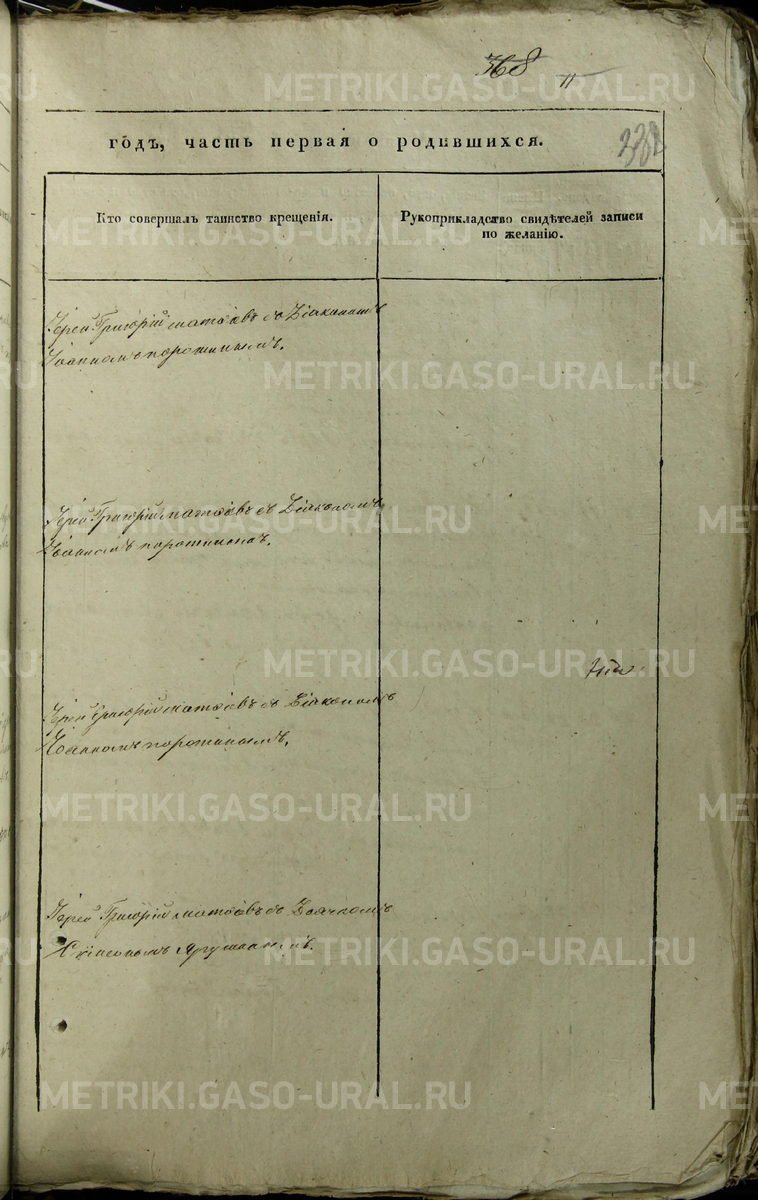 368 11
годъ, часть первая о родившихся.
Кто совершалъ таинство крещенія.
Рукоприкладство свидѣтелей записи
по желанію.
Іерей Григорій съ Діакономъ
Іоанномъ Порошинымъ.
Іерей Григорій съ Діакономъ
Іоанномъ Порошинымъ.
Іерей Григорій съ Діакономъ
Іоанномъ Порошинымъ.
Іерей Григорій съ
METRIKI.GASO-URAL.RU